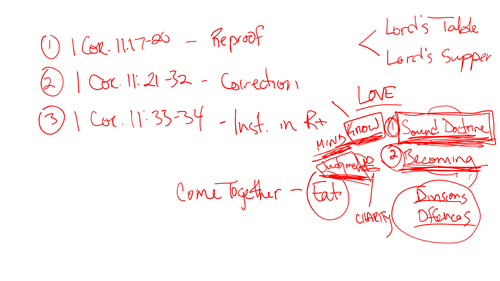 ① I Cor. 11:17-20 - Reproof
② I Cor. 11:21-32 - Correction
③ I Cor. 11:33-34 - Inst. in Rt
Lord's Table
Lord's Supper
LOVE
MIND
KNOW
① Sound Doctrine
Judgment
DO
② Becoming
Come Together - Eat
CHARITY
Divisions
Offences